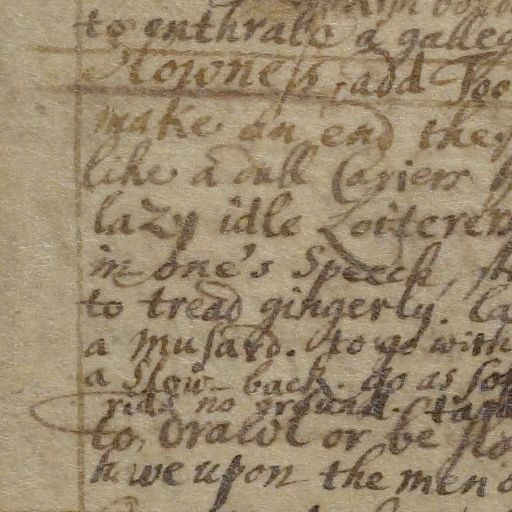 to enthrale a galle
Slowness, add Too
make an end the
like a dull Cariers
lazy idle Loiterer
in one's Speech, sl
to tread gingerly. la
a Musard. to go with
a Slow-back. go as sof
rids no ground. tard
to, Drawl or be slo
have upon the men